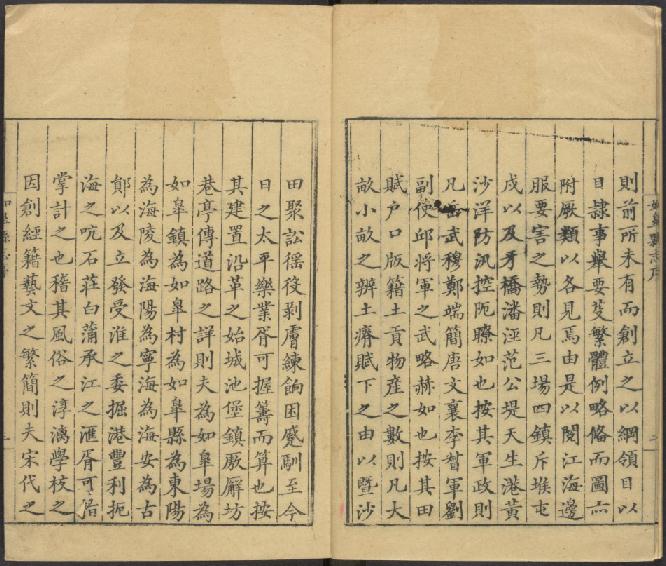 則前所未有而創立之以綱領目以
目隸事舉要芟繁體例略俻而圖亦
附厥類以各見焉由是以閱江海邊
服要害之勢則凡三場四鎮斥堠屯
戍以及牙橋潘涇范公堤天生港黃
沙洋防汛控阨瞭如也按其軍政則
凡岳武穆鄭端簡唐文襄李督軍劉
副使邱將軍之武略赫如也按其田
賦戸口版籍土貢物產之數則凡大
畝小畝之辨土瘠賦下之由以暨沙
田聚訟徭役剥膚練餉困蹙馴至今
日之太平樂業胥可握籌而算也按
其建置沿革之始城池堡鎮厫廨坊
巷亭傳道路之詳則夫為如皋塲為
如皋鎮為如皋村為如皋縣為東陽
為海陵為海陽為寧海為海安為古
鄖以及立發受淮之委掘港豐利扼
海之吭石莊白蒲承江之滙胥可指
掌計之也稽其風俗之淳漓學校之
因創經籍藝文之繁簡則夫宋代之